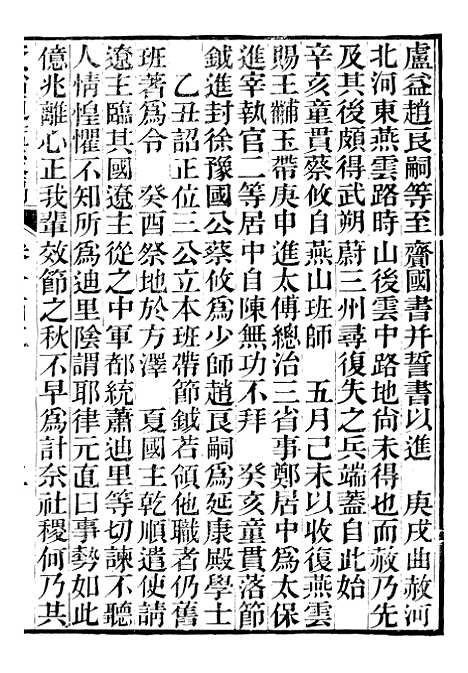 盧益趙良嗣等至齎國書并誓書以進　庚戌曲赦河
北河東燕雲路時山後雲中路地尚未得也而赦乃先
及其後頗得武朔蔚三州尋復失之兵端蓋自此始
辛亥童貫蔡攸自燕山班師　五月己未以收復燕雲
賜王黼玉帶庚申進太傅總治三省事鄭居中為太保
進宰執官二等居中自陳無功不拜　癸亥童貫落節
鉞進封徐豫國公蔡攸為少師趙良嗣為延康殿學士
乙丑詔正位三公立本班帶節鉞若領他職者仍舊
班著為令　癸酉祭地於方澤　夏國主乾順遣使請
遼主臨其國遼主從之中軍都統蕭迪里等切諫不聽
人情惶懼不知所為迪里陰謂耶律元直曰事勢如此
億兆離心正我輩效節之秋不早為計奈社稷何乃共